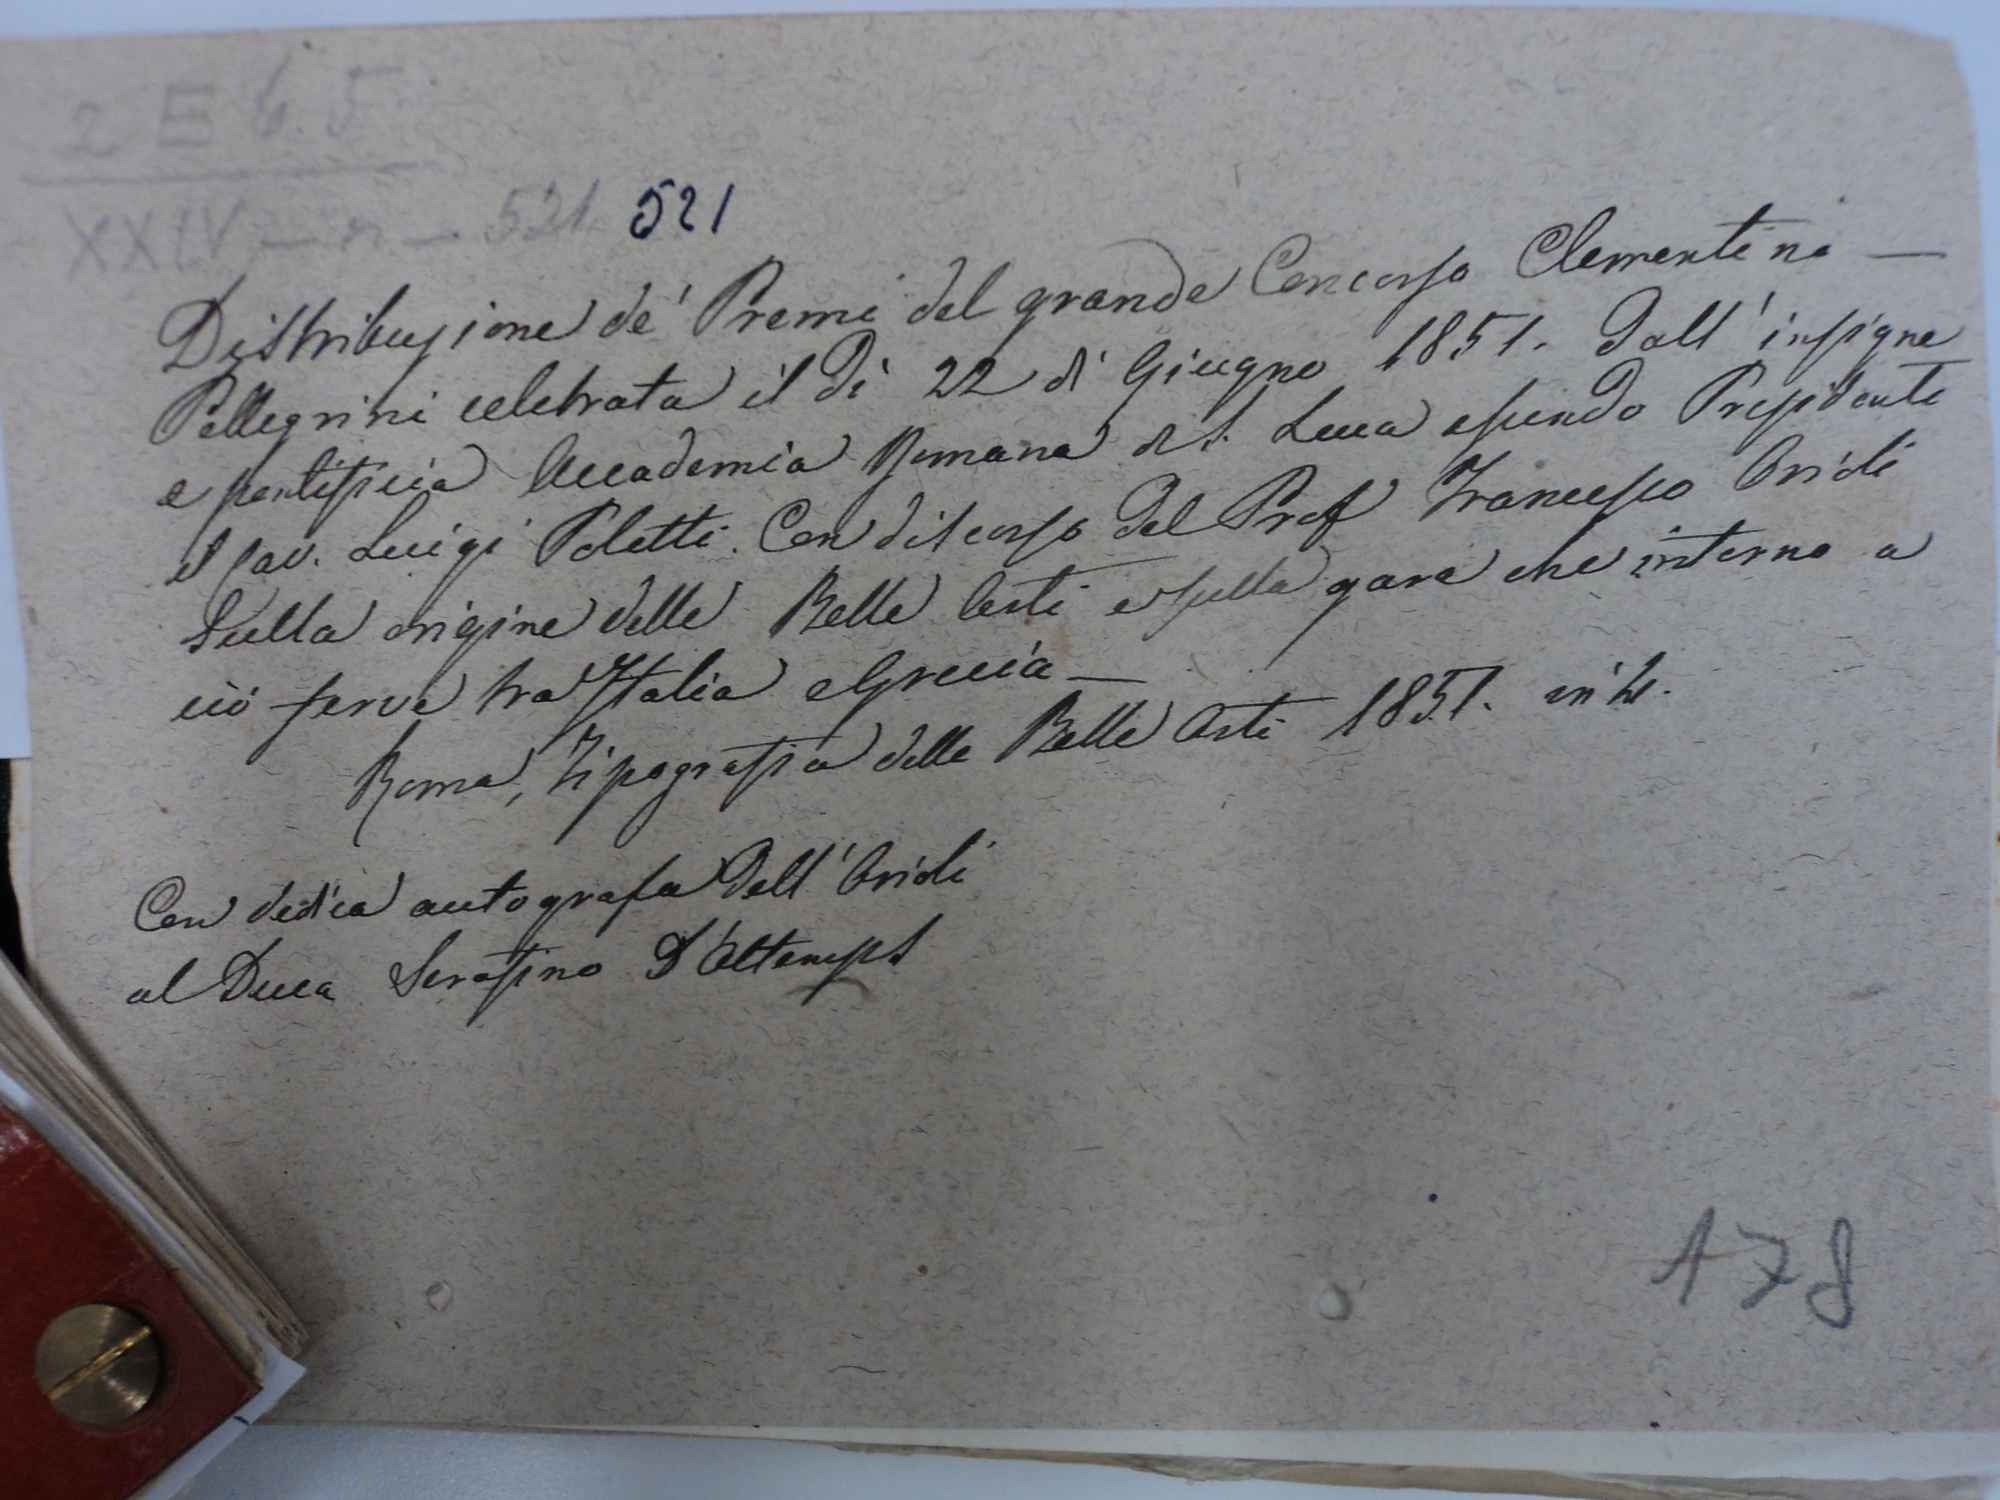 2 E 6. 5
XXIV - n - 521 521
Distribuzione de' Premi del grande Concorso Clementino —
Pellegrini celebrata il dì 22 di Giugno 1851. dall' insigne
e pontificia Accademia Romana di S. Luca essendo Presidente
il Cav. Luigi Poletti. Con discorso del Prof Francesco Orioli
Sulla origine delle Belle Arti e sulla gara che intorno a
ciò ferve tra Italia e Grecia —
Roma, Tipografia delle Belle Arti 1851. in
Con dedica autografa dell' Orioli
al Duca Serafino D'Altemps
178